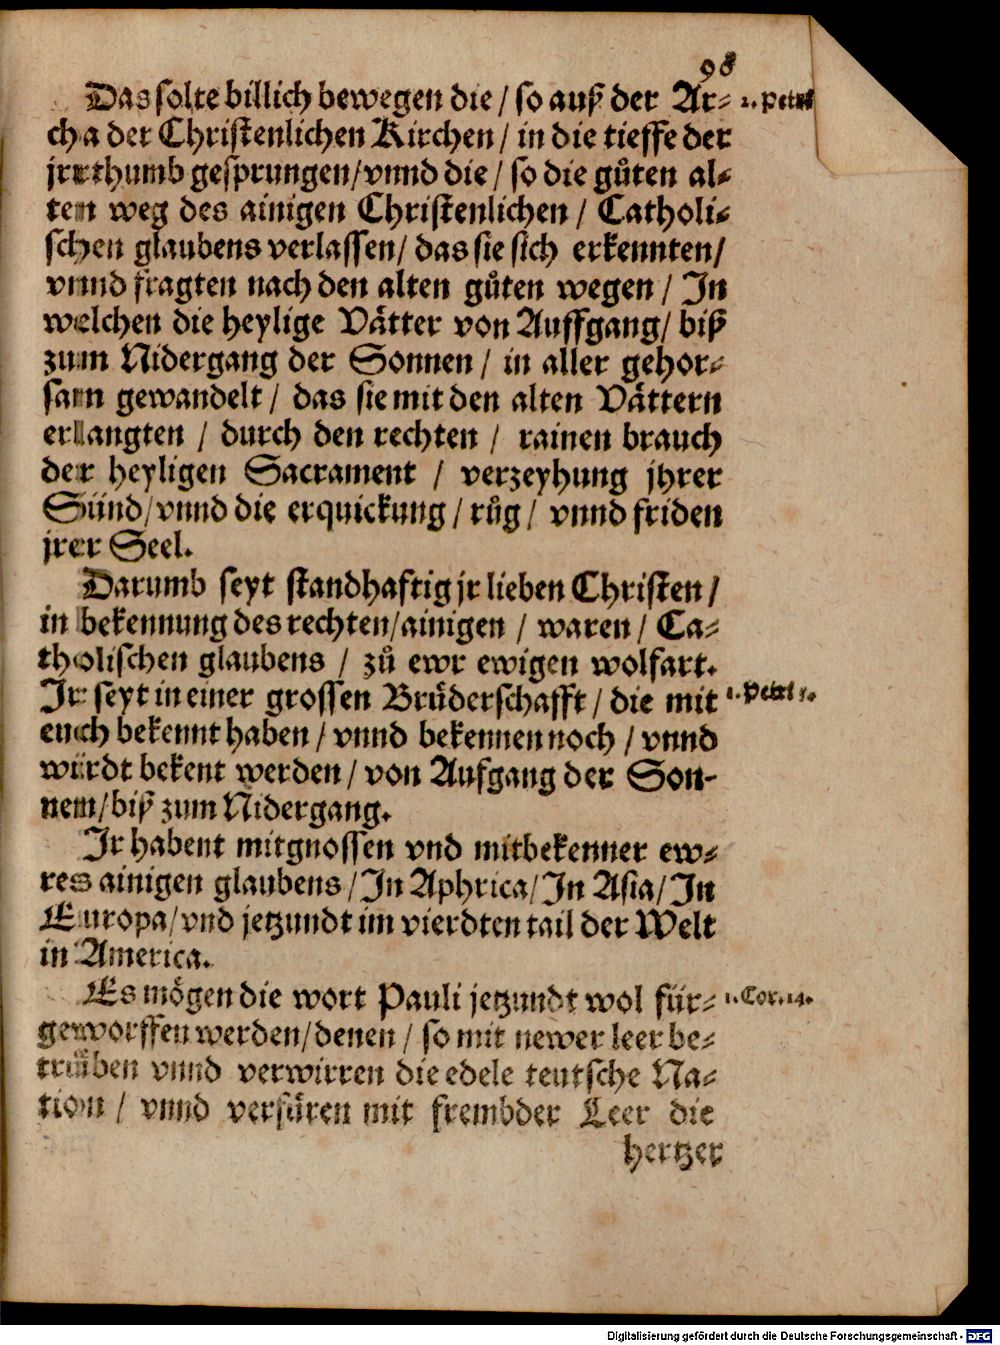 98
Das solte billich bewegen die / so auß der Ar⸗
cha der Christenlichen Kirchen / in die tieffe der
jrrthumb gesprungen / vnnd die / so die gůten al⸗
ten weg des ainigen Christenlichen / Catholi⸗
schen glaubens verlassen / das sie sich erkennten /
vnnd fragten nach den alten gůten wegen / In
welchen die heylige Vätter von Auffgang / biß
zum Nidergang der Sonnen / in aller gehor⸗
sam gewandelt / das sie mit den alten Vättern
erlangten / durch den rechten / rainen brauch
der heyligen Sacrament / verzeyhung jhrer
Sünd / vnnd die erquickung / růg / vnnd friden
jrer Seel.
Darumb seyt standhaftig jr lieben Christen /
in bekennung des rechten / ainigen / waren / Ca⸗
tholischen glaubens / zů ewr ewigen wolfart.
Ir seyt in einer grossen Brüderschafft / die mit
euch bekennt haben / vnnd bekennen noch / vnnd
würdt bekent werden / von Aufgang der Son-
nen / biß zum Nidergang.
Ir habent mitgnossen vnd mitbekenner ew⸗
res ainigen glaubens / In Aphrica / In Asia / In
Europa / vnd jetzundt im vierdten tail der Welt
in America.
Es mögen die wort Pauli jetzundt wol für⸗
geworffen werden / denen / so mit newer leer be⸗
trüben vnnd verwirren die edele teutsche Na⸗
tion / vnnd verfüren mit frembder Leer die
hertzer
1. Petri
1. Petri 5.
1. Cor. 14.
Digitalisierung gefördert durch die Deutsche Forschungsgemeinschaft - DFG